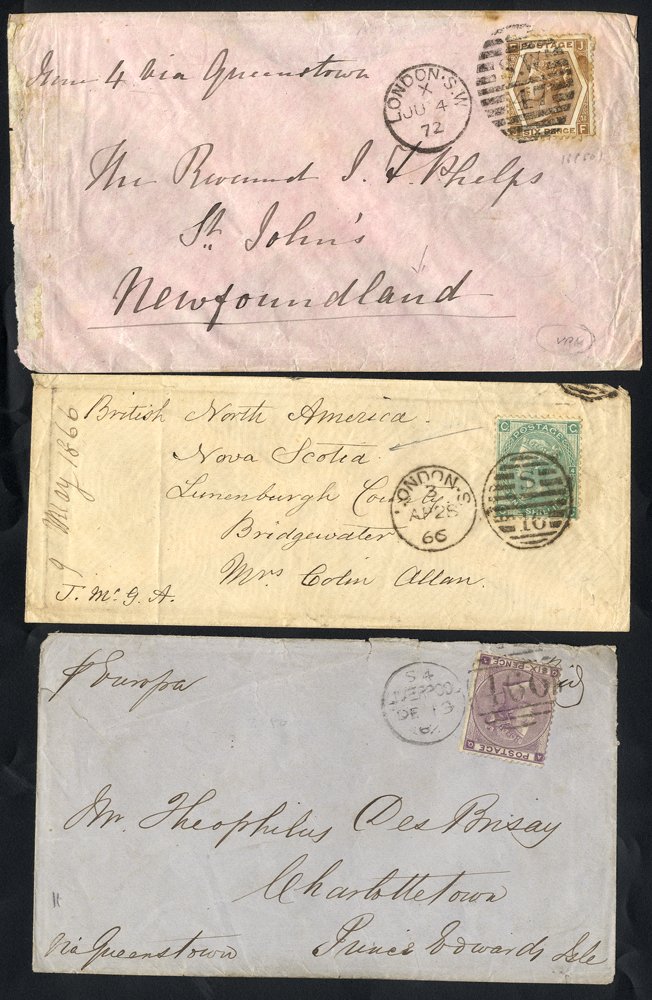 June 4 Via Queenstown
LONDON·S.W.
X
JU 4
72
POSTAGE
J
SIX PENCE
F
The Reverend J. F. Phelps
St. John's
Newfoundland
9 May 1866
British North America.
Nova Scotia
Lunenburgh County
Bridgewater
Mrs Colin Allan.
J. McG. A.
LONDON·S
AP 28
66
C POSTAGE C
10
p Europa
S4
LIVERPOOL
DE 13
SIX PENCE
POSTAGE
Paid
Mr. Theophilus Des Brisay
Charlottetown
via Queenstown
Prince Edwards Isle